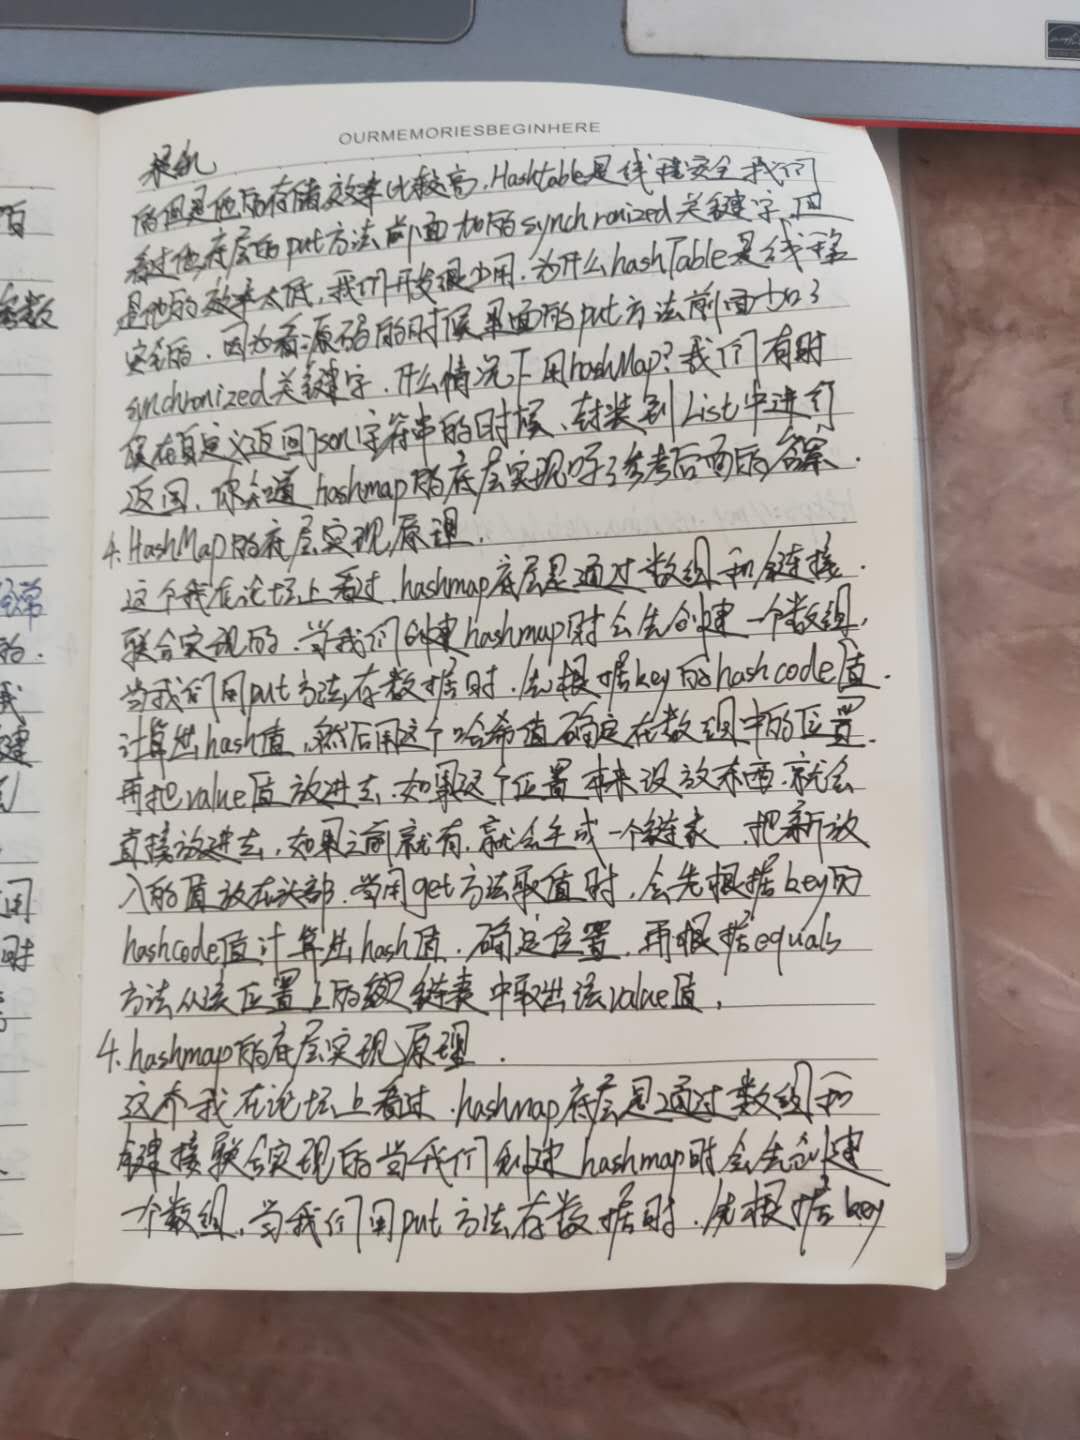 OURMEMORIESBEGINHERE
的但是他的存储效率比较高.Hashtable是线程安全我们
看过他底层的put方法前面加的synchronized关键字,但
是他的效率太低,我们开发很少用.为什么hashTable是线程
安全的.因为看源码的时候里面的put方法前面加了
synchronized关键字.什么情况下用hashMap?我们有时
候在自定义返回json字符串的时候、封装到List中进行
返回.你知道hashmap的底层实现吗?参考后面的答案.
4.HashMap的底层实现原理.
这个我在论坛上看过.hashmap底层是通过数组和链接
联合实现的.当我们创建hashmap时会先创建一个数组,
当我们用put方法存数据时.先根据key的hashcode值
计算出hash值,然后用这个哈希值确定在数组中的位置.
再把value值放进去.如果这个位置本来没放东西.就会
直接放进去,如果之前就有.就会生成一个链表.把新放
入的值放在头部.当用get方法取值时.会先根据key的
hashcode值计算出hash值.确定位置.再根据equals
方法从该位置上的链表中取出该value值.
4.hashmap的底层实现原理.
这个我在论坛上看过.hashmap底层是通过数组和
链接联合实现的当我们创建hashmap时会先创建
一个数组,当我们用put方法存数据时.先根据key